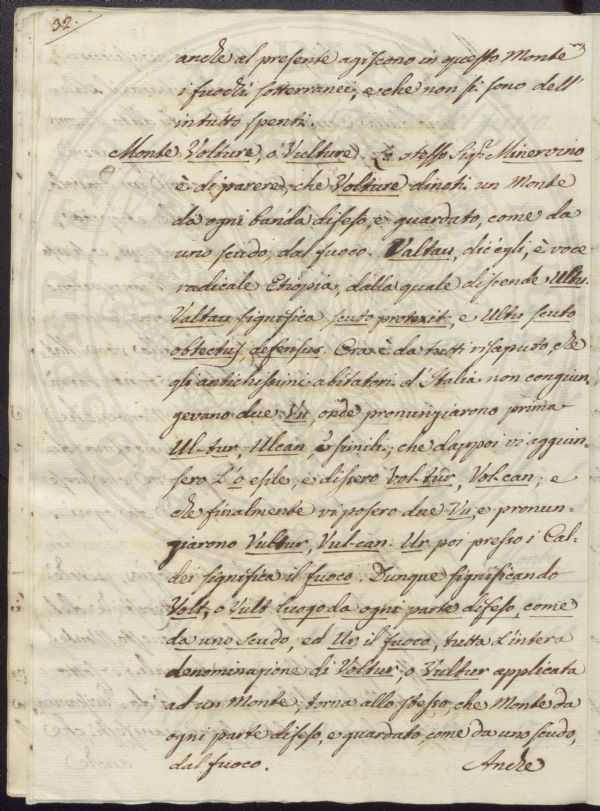 32.
anche al presente agiscono in questo Monte
i fuochi sotterranei, e che non si sono dell'
intutto spenti.
Monte Volture, o Vulture. Lo stesso Sig.r Minervino
è di parere, che Volture dinoti un Monte
da ogni banda difeso, e guardato, come da
uno scudo, dal fuoco. Valtau, dic'egli, è voce
radicale Etiopia, dalla quale discende Ultu.
Valtau significa scuto protexit, e Ultu scuto
obtectus, defensus. Ora è da tutti risaputo, che
gli antichissimi abitatori d'Italia non congiun-
gevano due Vu, onde pronunziarono prima
Ul-tur, Ulcan, e simili; che dappoi vi aggiun-
sero l'o esile, e dissero vol-tur, Vol-can; e
che finalmente vi posero due Vu, e pronun-
ziarono Vultur, Vul-can. Ur poi presso i Cal-
dei significa il fuoco. Dunque significando
Volt, o Vult luogo da ogni parte difeso, come
da uno scudo, ed Ur il fuoco, tutta l'intera
denominazione di Voltur, o Vultur applicata
ad un Monte, torna allo stesso, che Monte da
ogni parte difeso, e guardato, come da uno scudo,
dal fuoco. Anche